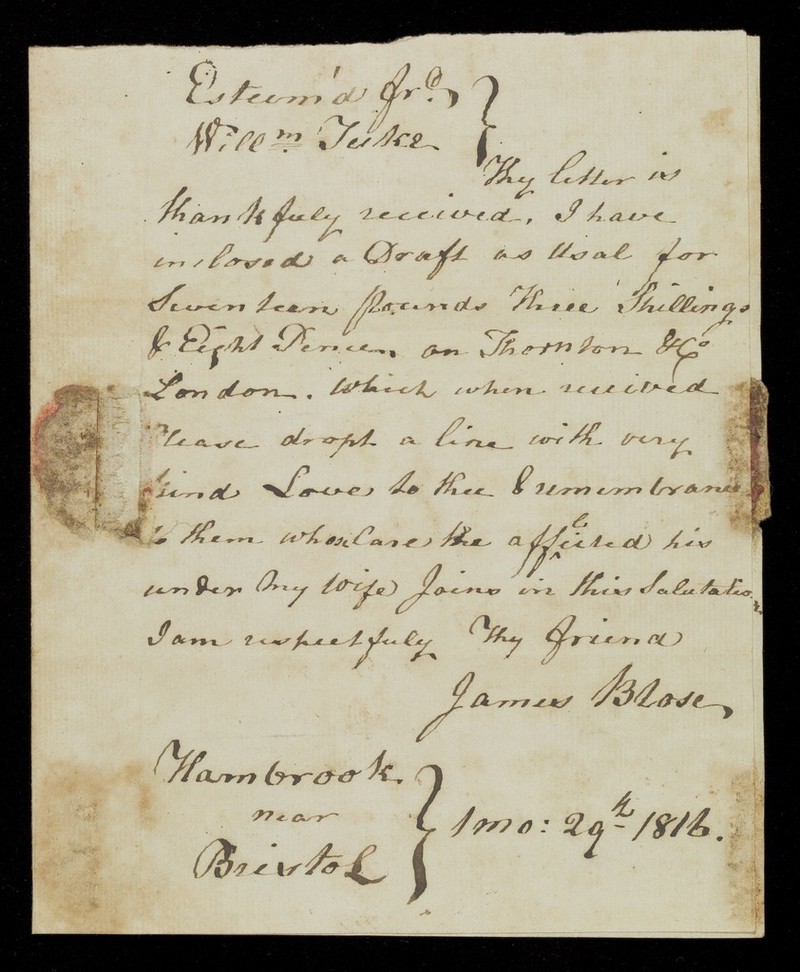 Esteem'd Frd,
Willm Tuke
Thy letter is
thankfuly received, I have
inclosed a Draft as Usal for
Seventeen Pounds Three Shillings
& Eight Pence, on Thornton &Co
London. Which when received
Please dropt a line with very
kind Love to thee & remembrance
to them whose Care the afflicted his
under My Wife Joins in this Salutation
I am respectfuly Thy friend
James Blose,
Hambrook.
near
Bristol
1mo: 29th 1816.